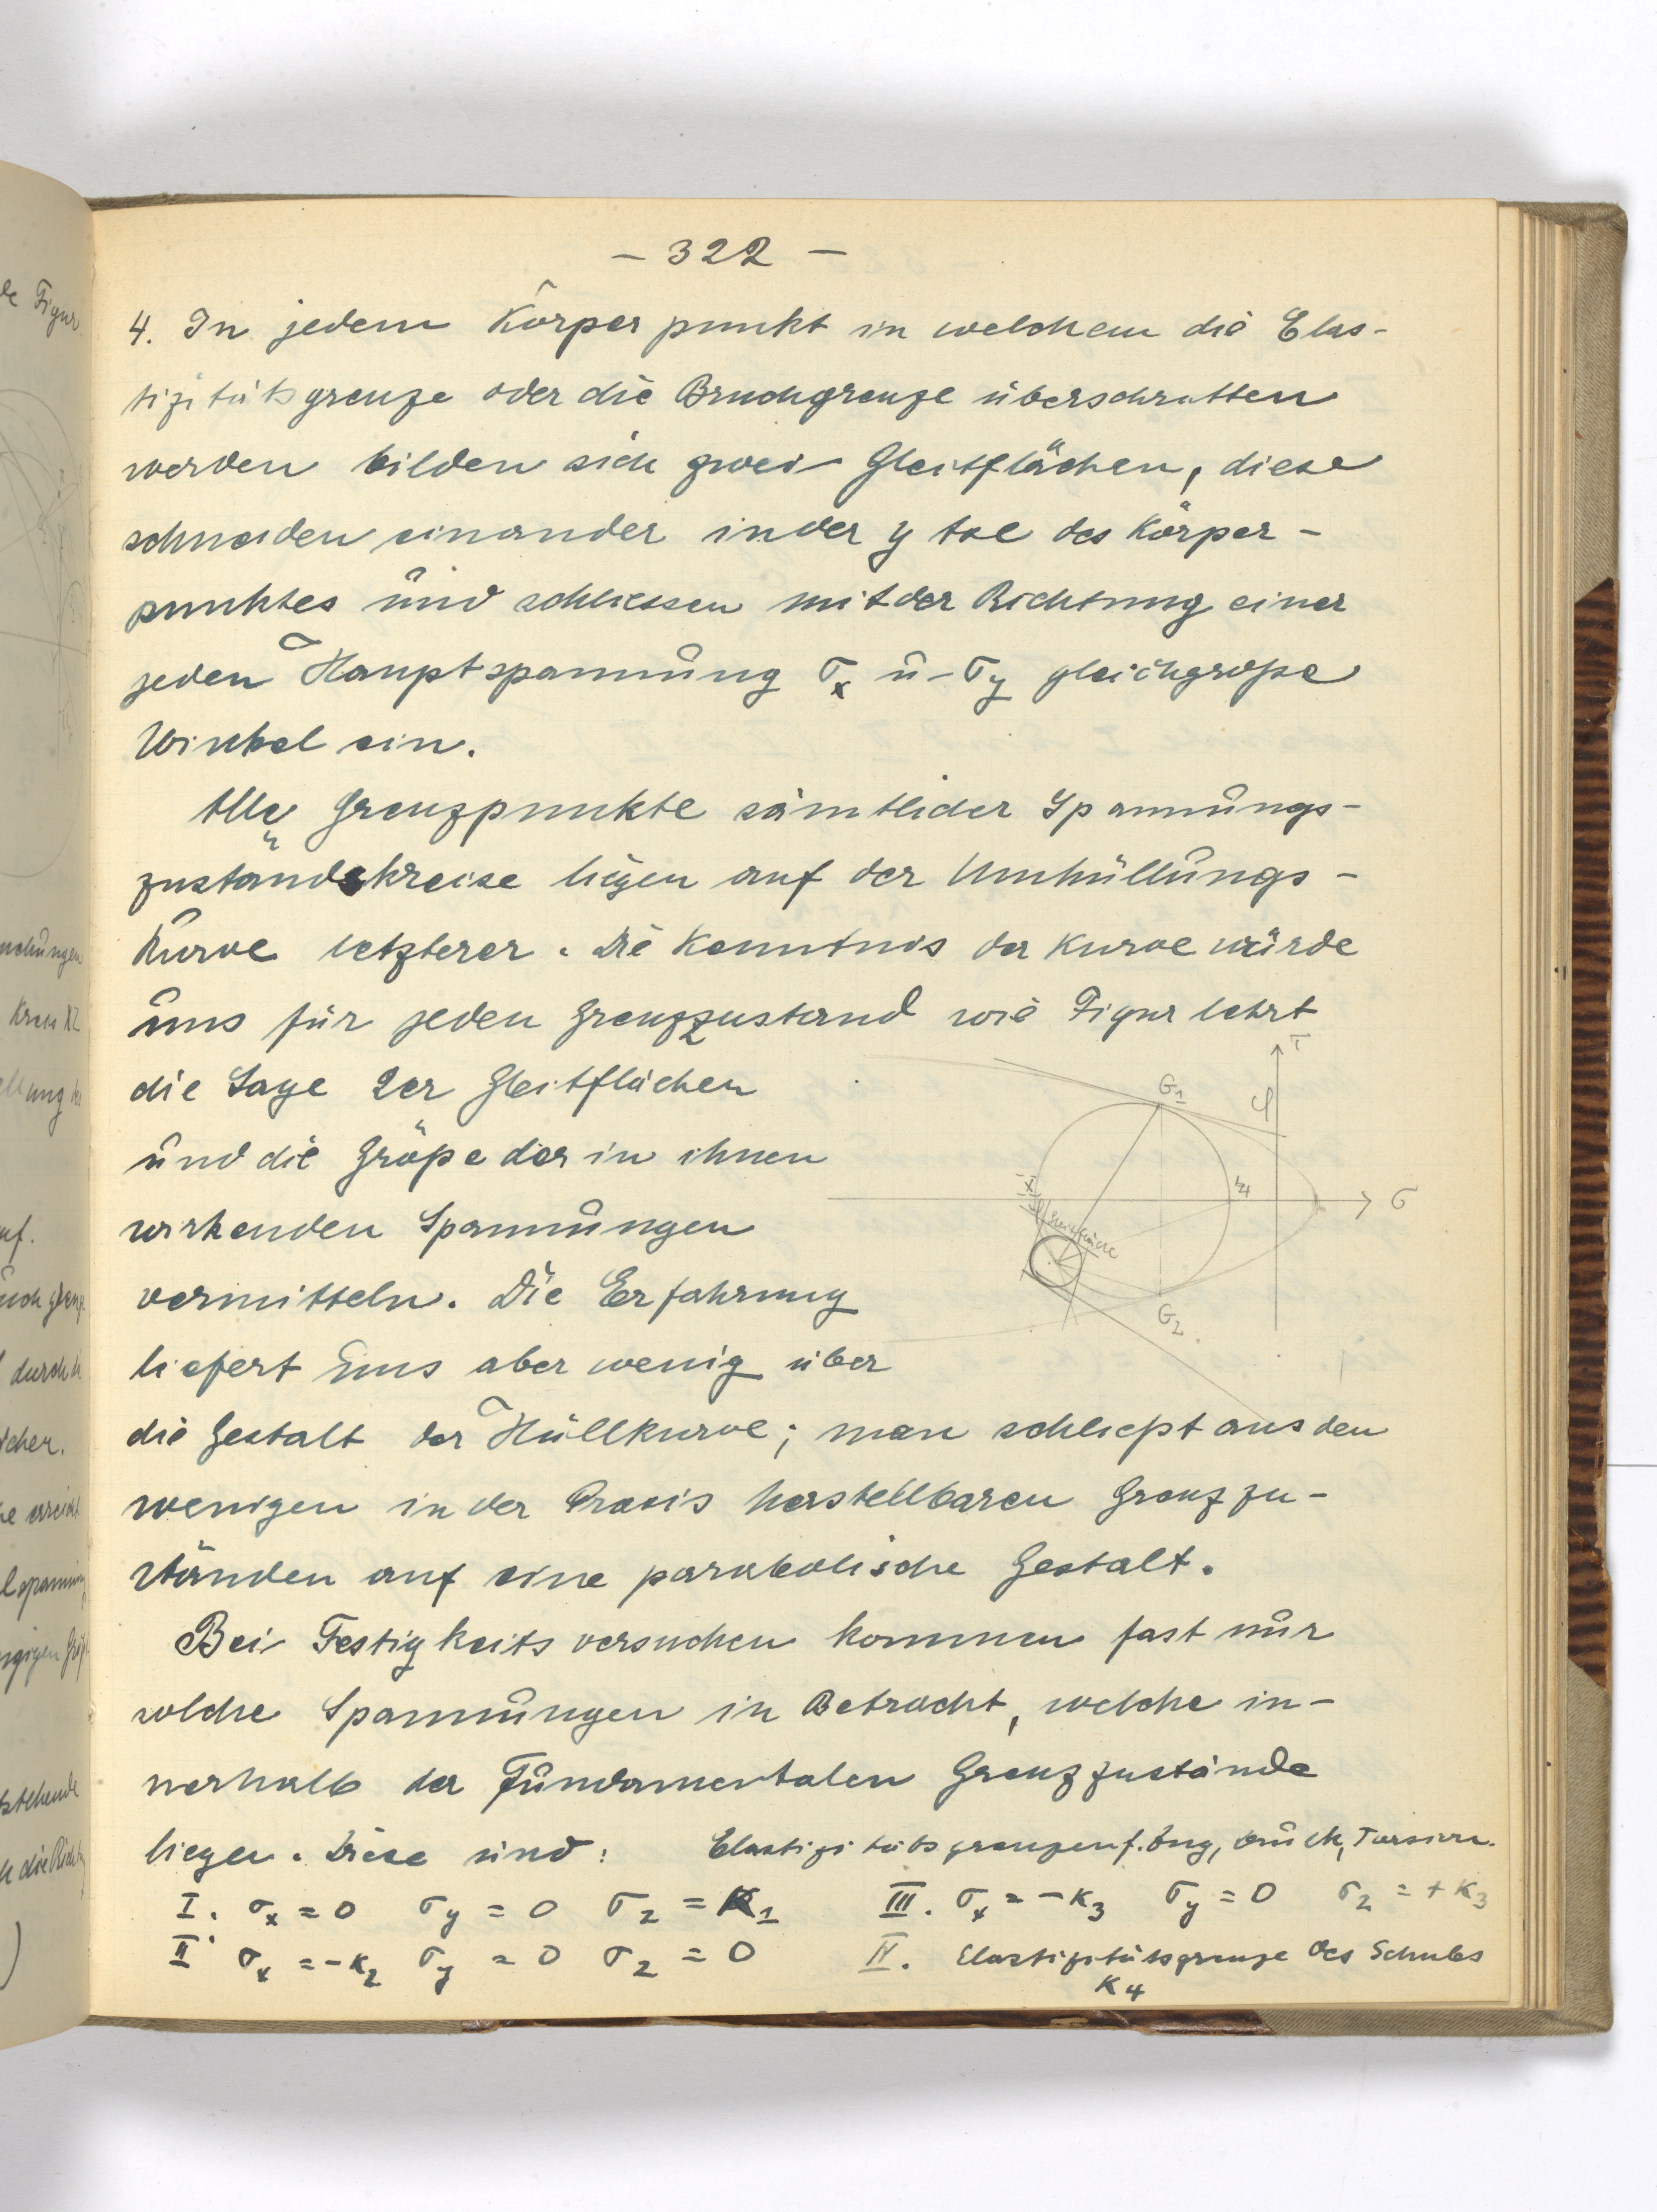 – 322 –
4. In jedem Körperpunkt in welchem die Elas-
tizitätsgrenze oder die Bruchgrenze überschritten
werden bilden sich zwei Gleitflächen, diese
schneiden einander in der y tse des Körper-
punktes und schliessen mit der Richtung einer
jeden Hauptspannung σx u- σy gleichgroße
Winkel ein.
Alle Grenzpunkte sämtlicher Spannungs-
zustandskreise liegen auf der Umhüllungs-
kurve letzterer. Die Kenntnis der Kurve würde
uns für jeden Grenzzustand wie Figur lehrt
die Lage der Gleitflächen
und die Größe der in ihnen
wirkenden Spannungen
vermitteln. Die Erfahrung
liefert uns aber wenig über
die Gestalt der Hüllkurve; man schließt aus den
wenigen in der Praxis herstellbaren Grenzzu-
ständen auf eine parabolische Gestalt.
Bei Festigkeitsversuchen kommen fast nur
solche Spannungen in Betracht, welche in-
nerhalb der Fundamentalen Grenzzustände
liegen. Diese sind: Elastizitätsgrenzen f. Zug, Druck, Torsion.
I. σx = 0 σy = 0 σz = K1 III. σx = -K3 σy = 0 σz = + K3
II. σx = -K2 σy = 0 σz = 0 IV. Elastizitätsgrenze des Schubs
K4
τ
G1
φ
σ
G2